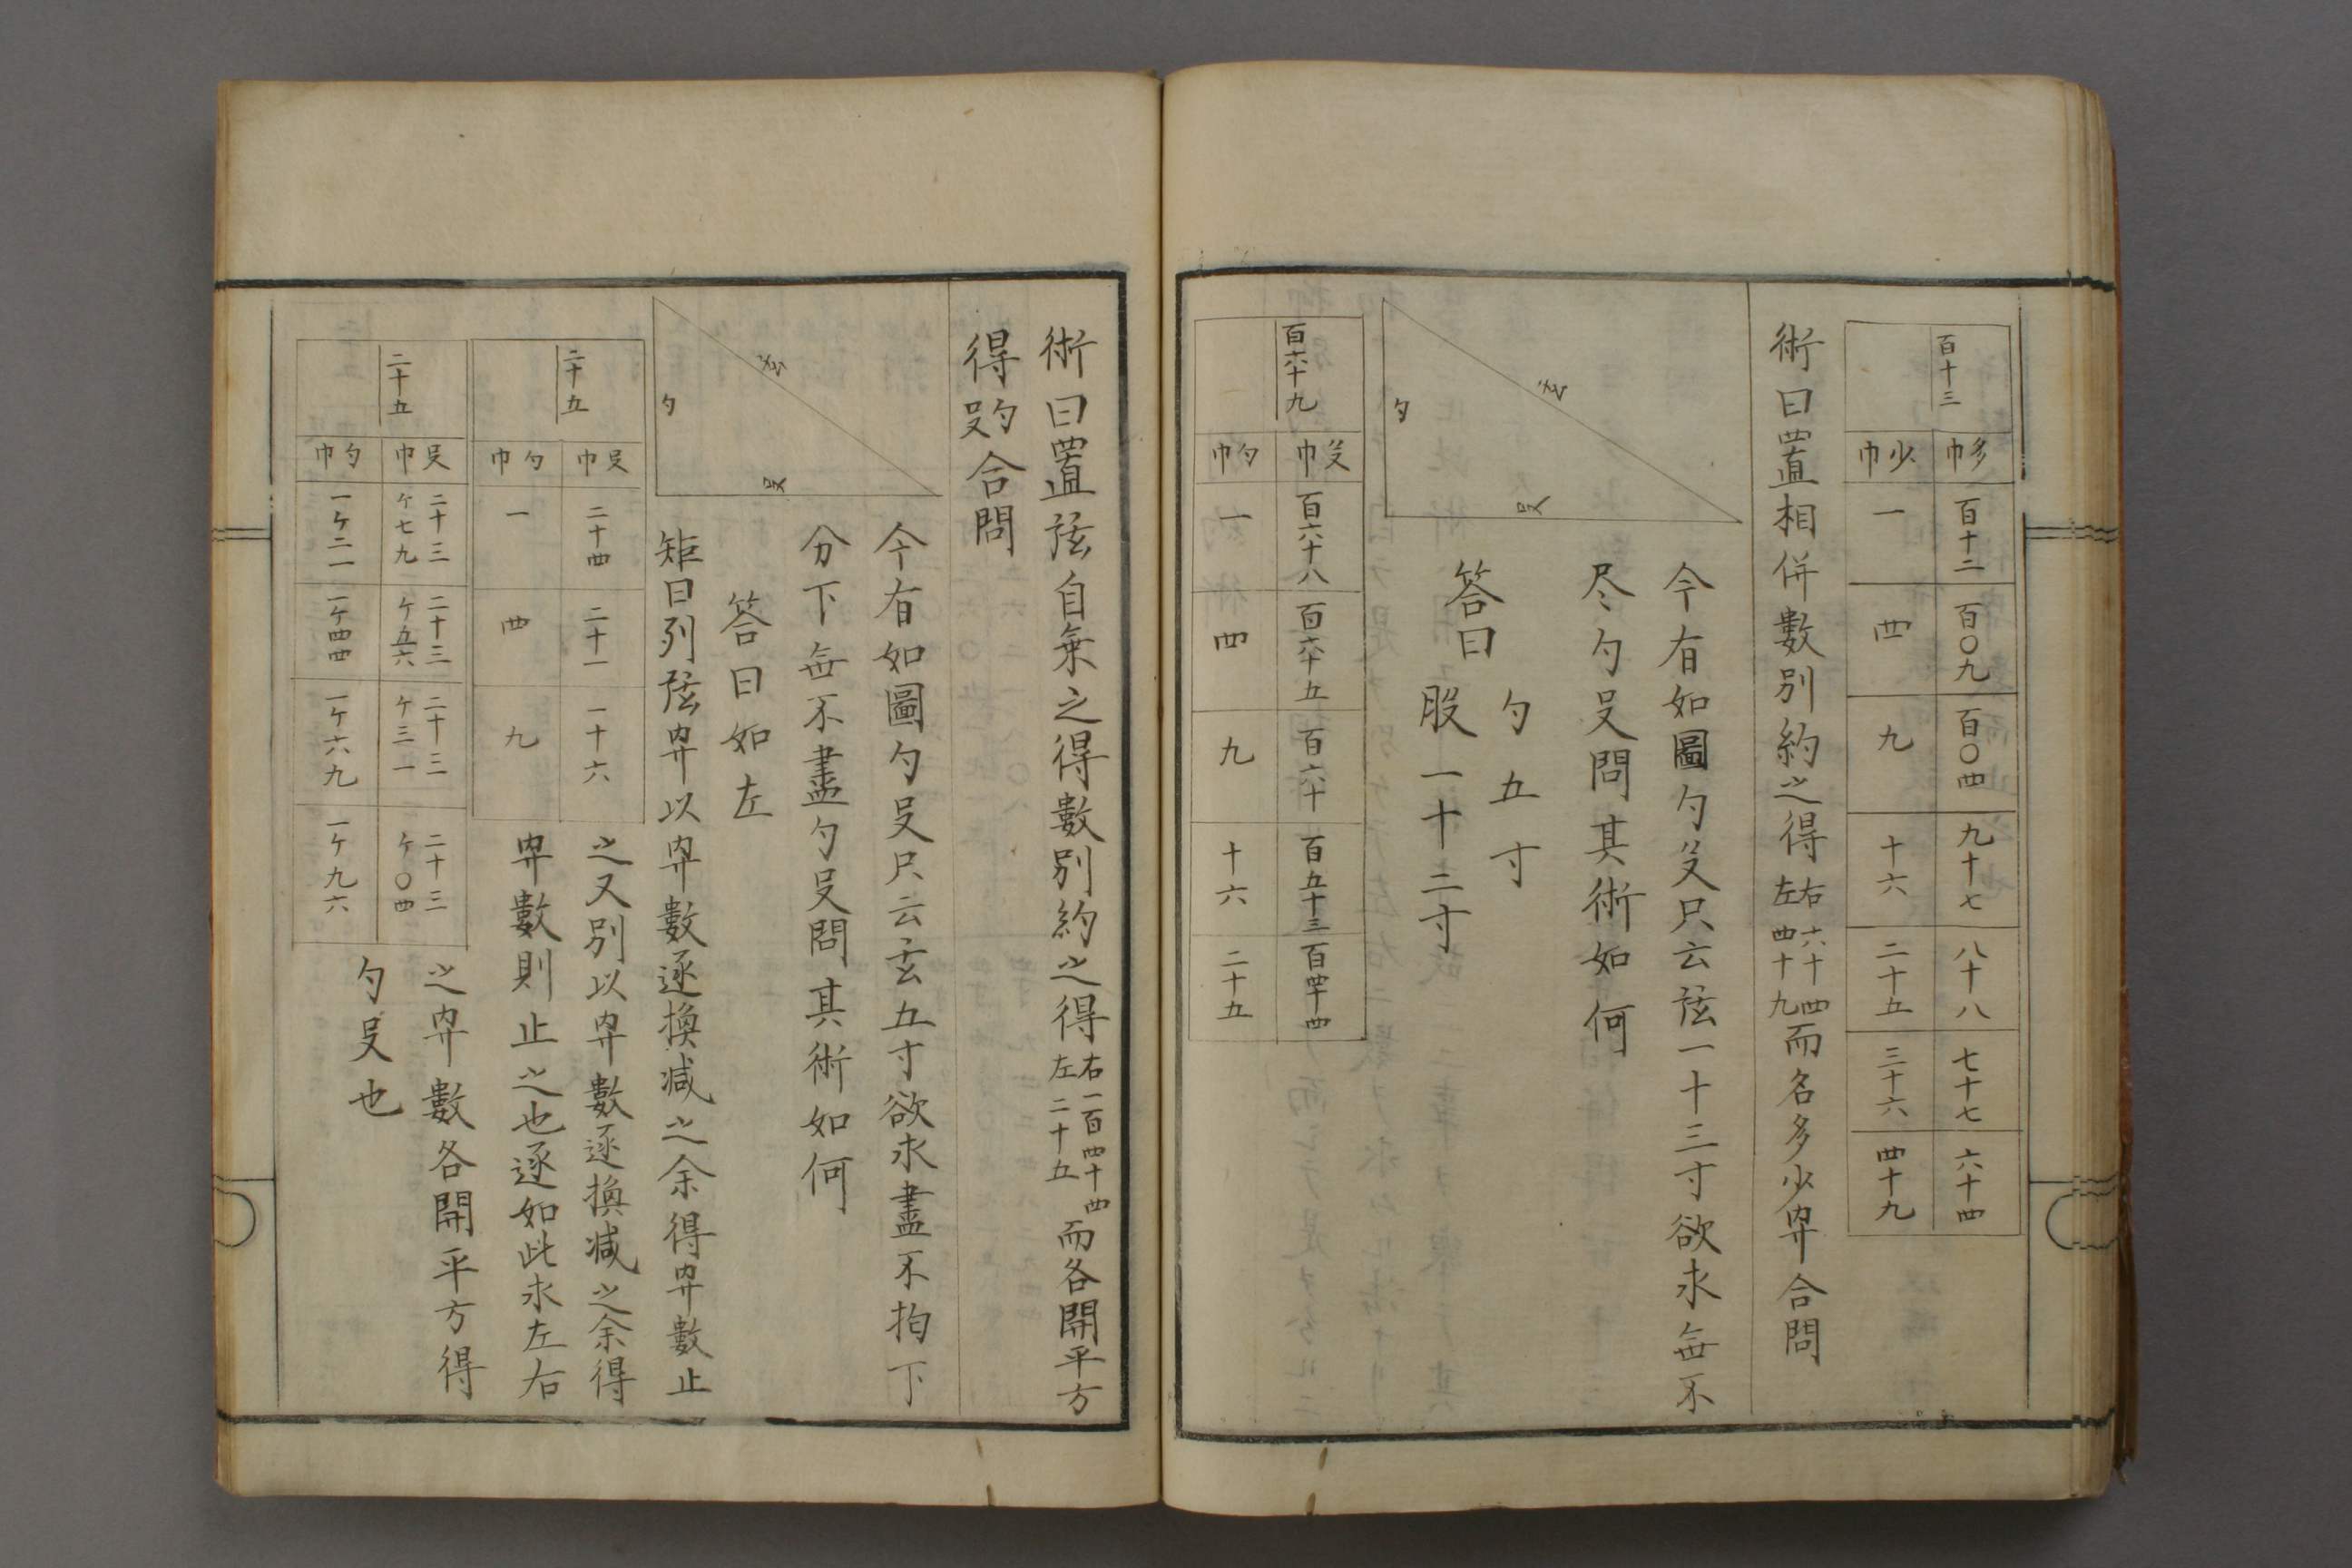 百十三
多巾 百十二 百〇九 百〇四 九十七 八十八 七十七 六十四
少巾 一 四 九 十六 二十五 三十六 四十九
術曰置相併數別約之得右六十四左四十九而名多少巾合問
玄
勾
殳
今有如圖勾殳只云弦一十三寸欲求無不
尽勾殳問其術如何
答曰
勾五寸
股一十二寸
百六十九
殳巾 百六十八 百六十五 百六十 百五十三 百四十四
勾巾 一 四 九 十六 二十五
術曰置弦自乗之得數別約之得右一百四十四左二十五而各開平方
得勾殳合問
玄
勾
殳
今有如圖勾殳只云玄五寸欲求盡不拘下
分下無不盡勾殳問其術如何
答曰如左
矩曰列弦巾以巾數逐換减之余得巾數止
二十五
殳巾 二十四 二十一 一十六
勾巾 一 四 九
之又別以巾數逐換减之余得
巾數則止之也逐如此求左右
二十五
殳巾 二十三ケ七九 二十三ケ五六 二十三ケ三一 二十三ケ〇四
勾巾 一ケ二一 一ケ四四 一ケ六九 一ケ九六
之巾數各開平方得
勾殳也